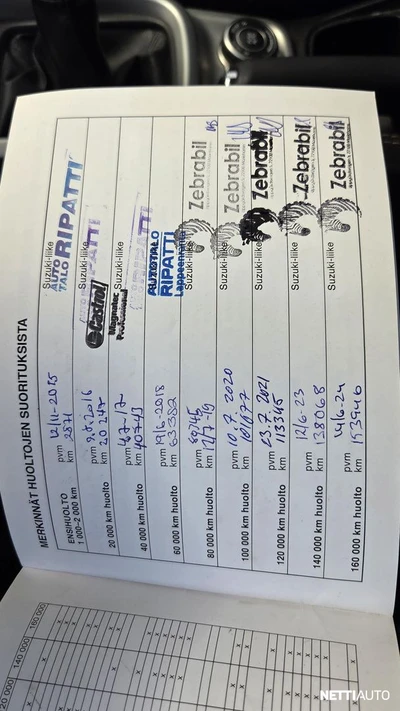 MERKINNÄT HUOLTOJEN SUORITUKSISTA
ENSIHUOLTO
1 000–2 000 km
pvm 12/11-2015
km 2871
Suzuki-liike
AUTO
TALO RIPATTI
20 000 km huolto
pvm 9.8.2016
km 20247
Suzuki-liike
Castrol
Magnatec
Professional
RIPATTI
40 000 km huolto
pvm 4.7-17
km 40743
Suzuki-liike
60 000 km huolto
pvm 19/6-2018
km 63382
AUTOTALO
RIPATTI
Lappeenranta
80 000 km huolto
pvm 80745
km 12/7-19
Suzuki-liike
Zebrabil
100 000 km huolto
pvm 10.7.2020
km 101677
Suzuki-liike
Zebrabil
120 000 km huolto
pvm 23.7.2021
km 113345
Suzuki-liike
Zebrabil
140 000 km huolto
pvm 12/6-23
km 138068
Suzuki-liike
Zebrabil
160 000 km huolto
pvm 14/6-24
km 153946
Suzuki-liike
Zebrabil
140 000
160 000
NETTIAUTO